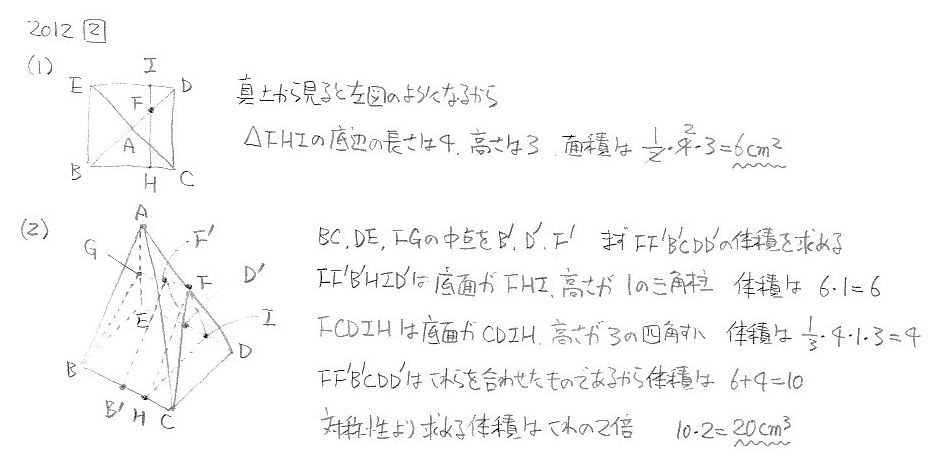 2012 2
(1)
E I D
F
A
B H C
真上から見ると左図のようになるから
△FHIの底辺の長さは4、高さは3 面積は 1/2・4・3=6cm²
2
(2)
A
F'
G
F D'
E I
B D
B' H C
BC, DE, FGの中点をB', D', F' まず FF'B'CDD'の体積を求める
FF'B'HID'は底面がFHI、高さが1の三角柱 体積は 6・1=6
FCDIHは底面がCDIH、高さが3の四角すい 体積は 1/3・4・1・3=4
FF'B'CDD'はこれらを合わせたものであるから体積は 6+4=10
対称性より求める体積はこれの2倍 10・2=20cm³